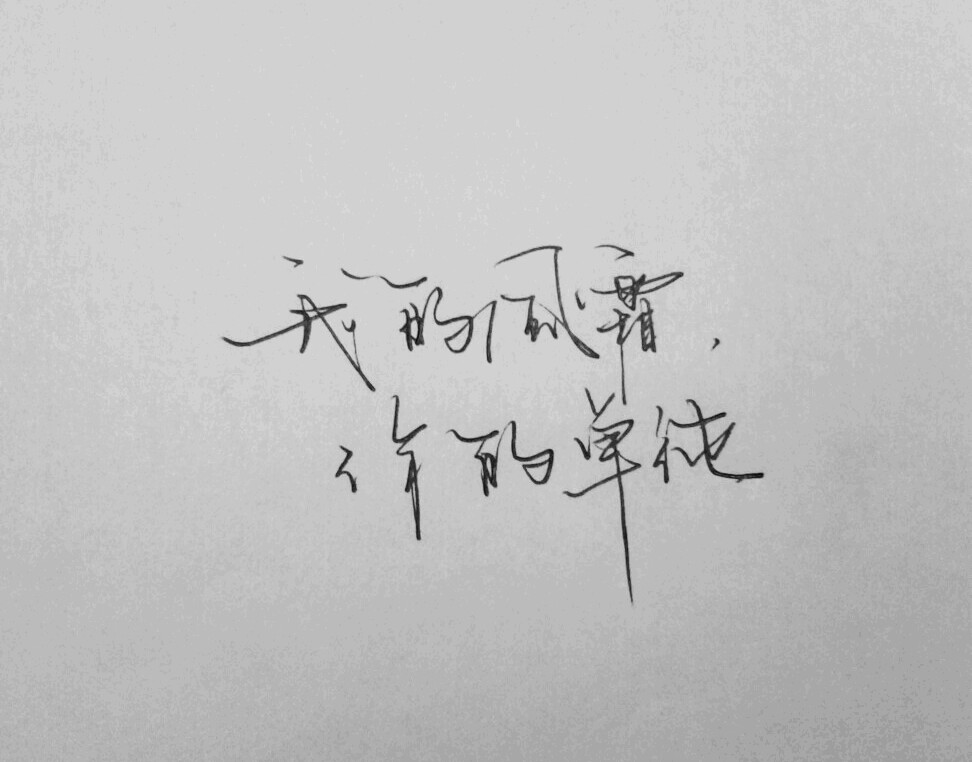 我的风霜,
许的单纯